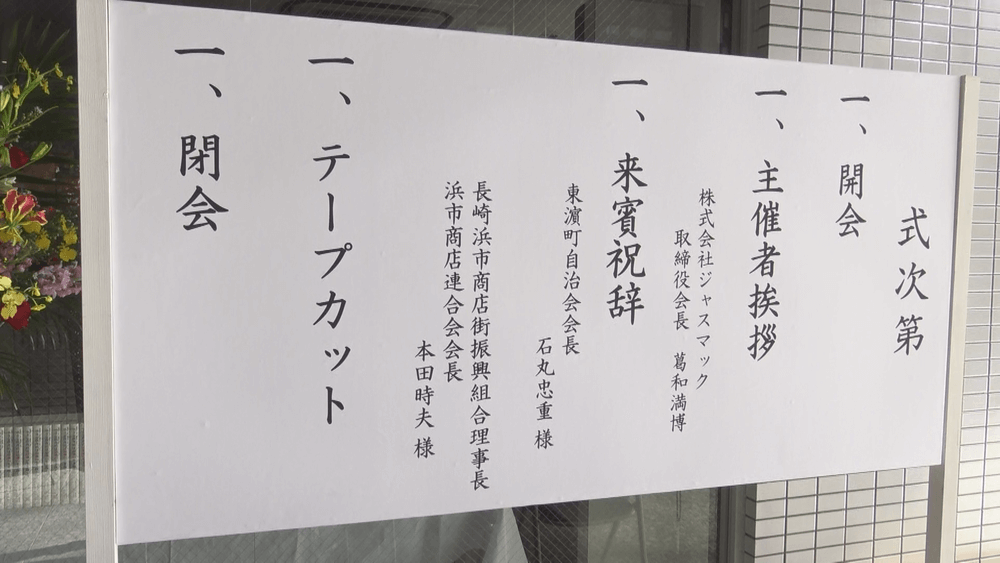 式次第
一、開会
一、主催者挨拶
株式会社ジャスマック
取締役会長 葛和満博
一、来賓祝辞
東濵町自治会会長
石丸忠重 様
長崎浜市商店街振興組合理事長
浜市商店連合会会長
本田時夫 様
一、テープカット
一、閉会